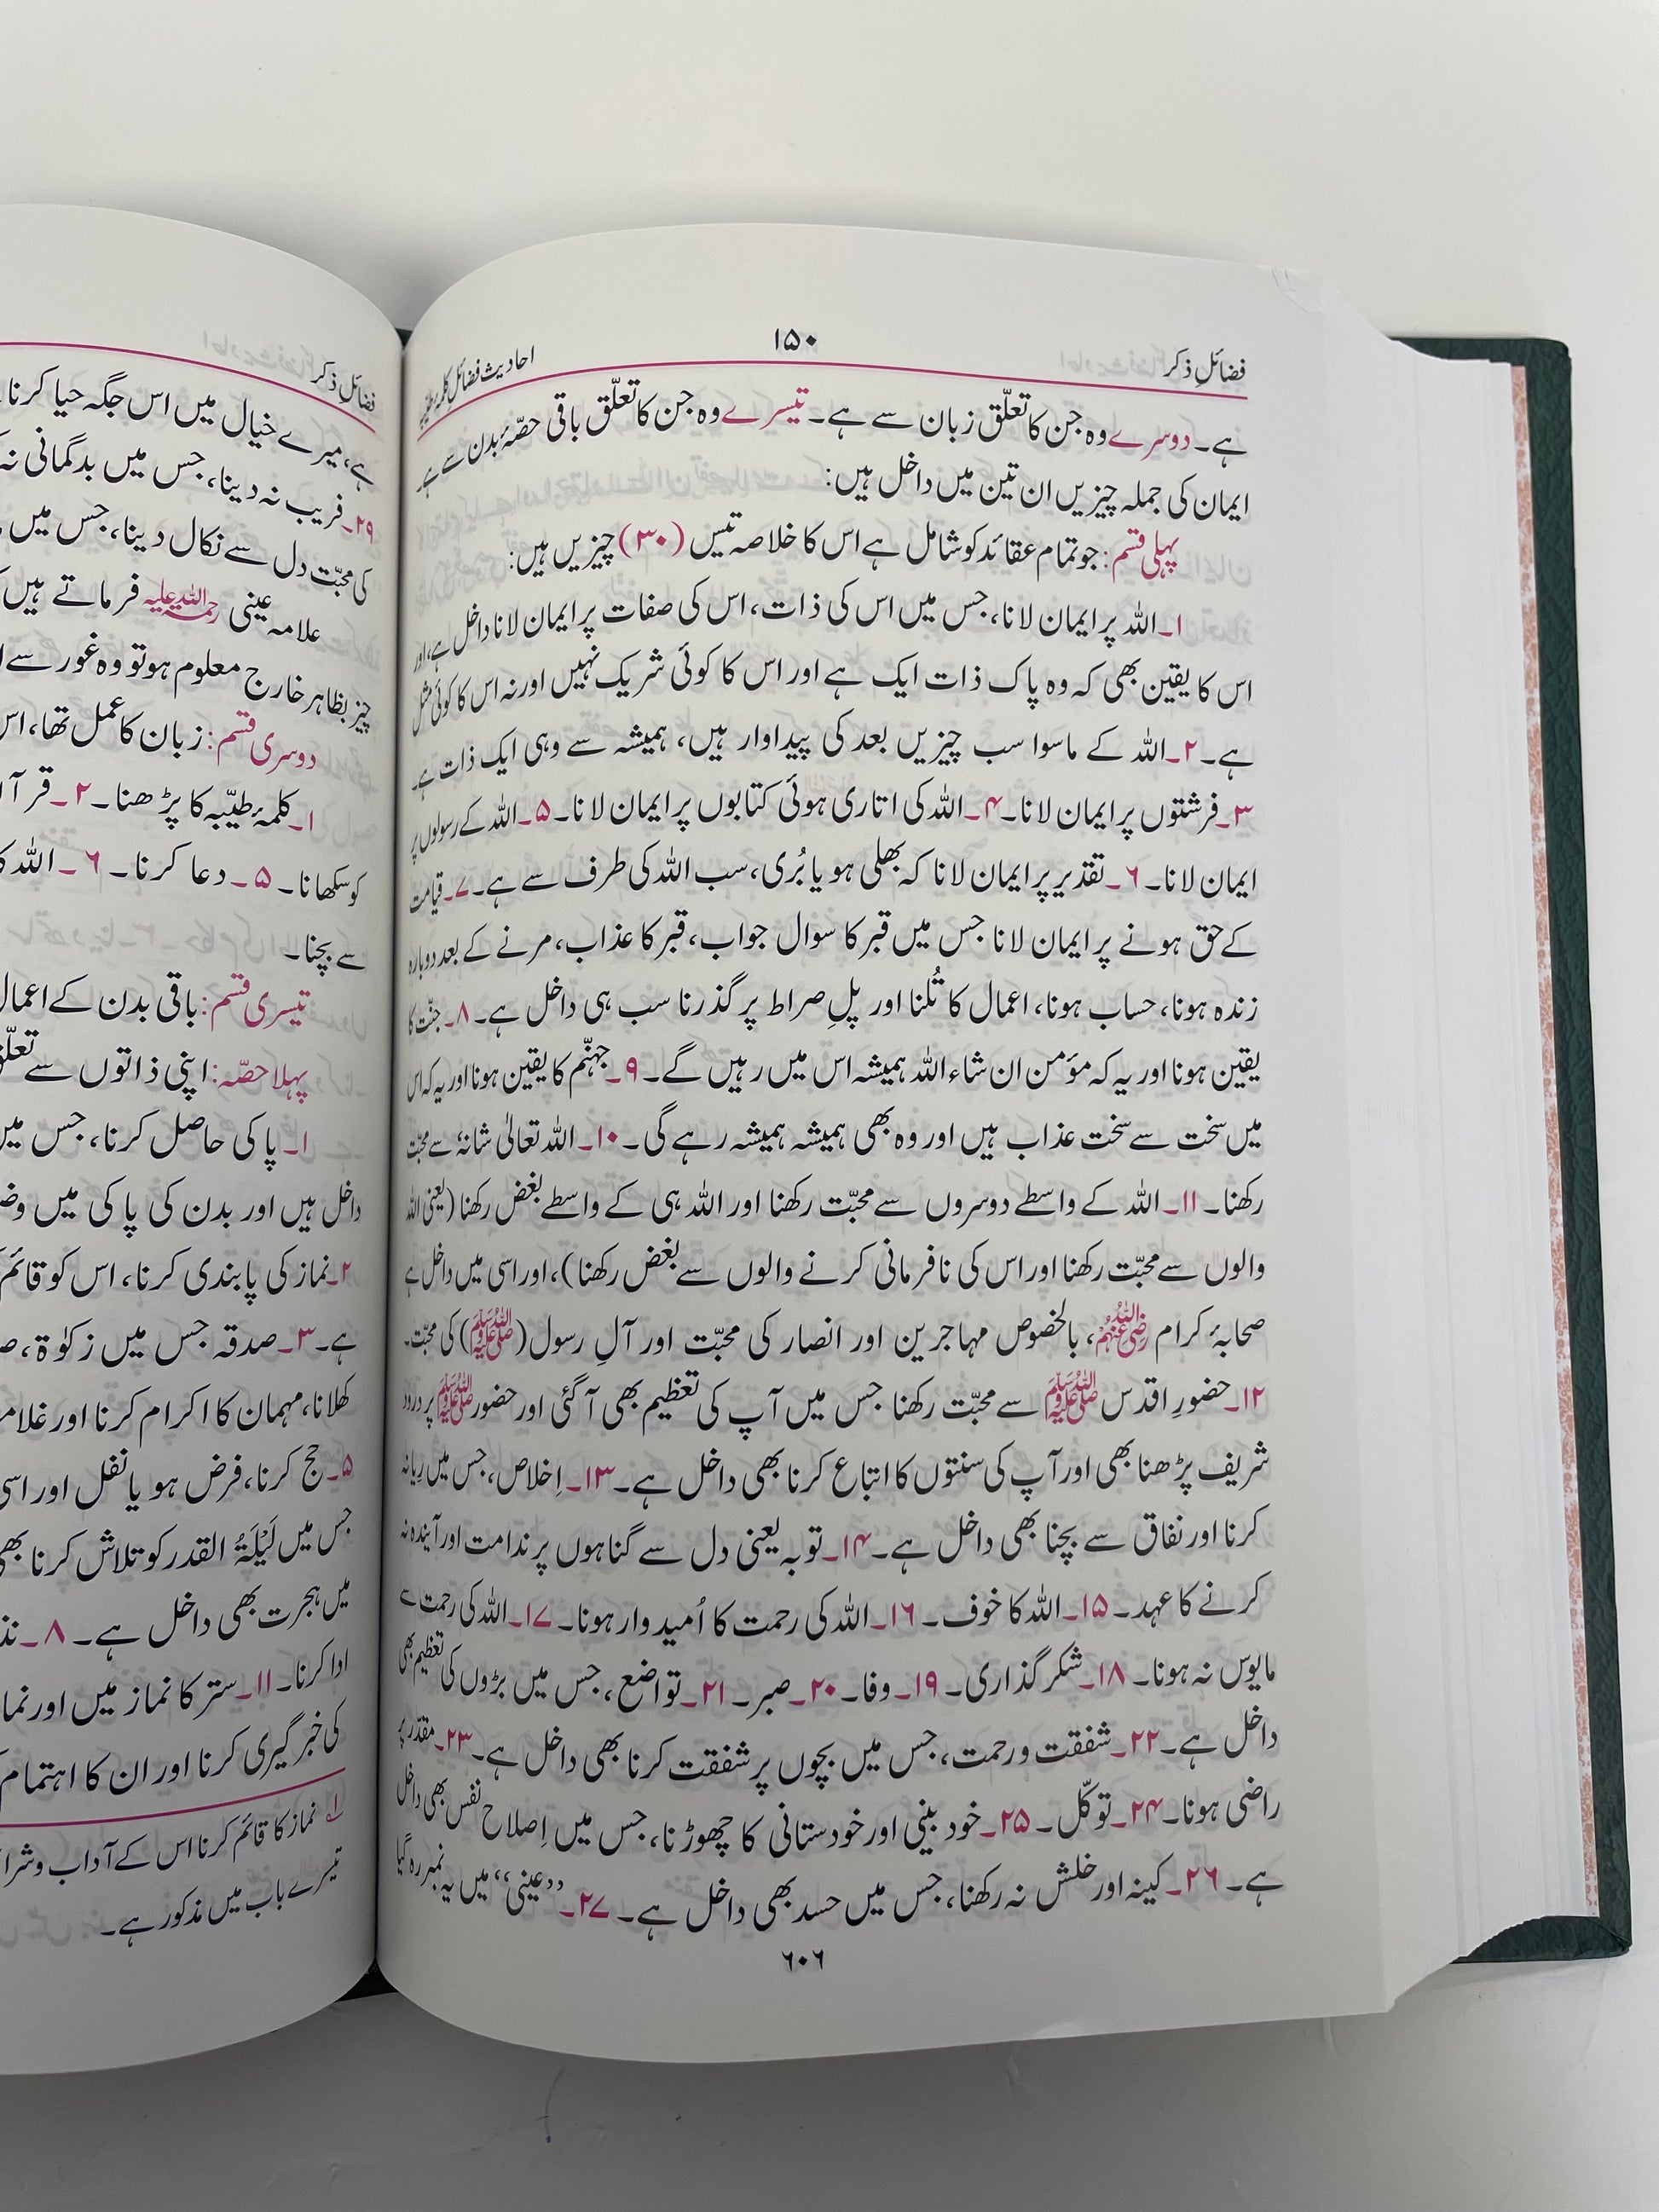 فضائلِ ذکر
۱۵۰
احادیث فضائل کلمہ طیبہ
ہے۔ دوسرے وہ جن کا تعلّق زبان سے ہے۔ تیسرے وہ جن کا تعلّق باقی حصّۂ بدن سے ہے۔
ایمان کی جملہ چیزیں ان تین میں داخل ہیں:
پہلی قسم: جو تمام عقائد کو شامل ہے اس کا خلاصہ تیس (۳۰) چیزیں ہیں:
۱۔ اللہ پر ایمان لانا، جس میں اس کی ذات، اس کی صفات پر ایمان لانا داخل ہے، اور
اس کا یقین بھی کہ وہ پاک ذات ایک ہے اور اس کا کوئی شریک نہیں اور نہ اس کا کوئی مثل
ہے۔ ۲۔ اللہ کے ماسوا سب چیزیں بعد کی پیداوار ہیں، ہمیشہ سے وہی ایک ذات ہے۔
۳۔ فرشتوں پر ایمان لانا۔ ۴۔ اللہ کی اتاری ہوئی کتابوں پر ایمان لانا۔ ۵۔ اللہ کے رسولوں پر
ایمان لانا۔ ۶۔ تقدیر پر ایمان لانا کہ بھلی ہو یا بُری، سب اللہ کی طرف سے ہے۔ ۷۔ قیامت
کے حق ہونے پر ایمان لانا جس میں قبر کا سوال جواب، قبر کا عذاب، مرنے کے بعد دوبارہ
زندہ ہونا، حساب ہونا، اعمال کا تُلنا اور پلِ صراط پر گذرنا سب ہی داخل ہے۔ ۸۔ جنّت کا
یقین ہونا اور یہ کہ مؤمن ان شاء اللہ ہمیشہ اس میں رہیں گے۔ ۹۔ جہنّم کا یقین ہونا اور یہ کہ اس
میں سخت سے سخت عذاب ہیں اور وہ بھی ہمیشہ ہمیشہ رہے گی۔ ۱۰۔ اللہ تعالیٰ شانہٗ سے محبّت
رکھنا۔ ۱۱۔ اللہ کے واسطے دوسروں سے محبّت رکھنا اور اللہ ہی کے واسطے بغض رکھنا (یعنی اللہ
والوں سے محبّت رکھنا اور اس کی نافرمانی کرنے والوں سے بغض رکھنا)، اور اسی میں داخل ہے
صحابۂ کرام رضی اللہ عنہم، بالخصوص مہاجرین اور انصار کی محبّت اور آلِ رسول (ﷺ) کی محبّت۔
۱۲۔ حضورِ اقدس ﷺ سے محبّت رکھنا جس میں آپ کی تعظیم بھی آگئی اور حضور ﷺ پر درود
شریف پڑھنا بھی اور آپ کی سنتوں کا اتباع کرنا بھی داخل ہے۔ ۱۳۔ اِخلاص، جس میں ریا نہ
کرنا اور نفاق سے بچنا بھی داخل ہے۔ ۱۴۔ توبہ یعنی دل سے گناہوں پر ندامت اور آیندہ نہ
کرنے کا عہد۔ ۱۵۔ اللہ کا خوف۔ ۱۶۔ اللہ کی رحمت کا اُمیدوار ہونا۔ ۱۷۔ اللہ کی رحمت سے
مایوس نہ ہونا۔ ۱۸۔ شکر گذاری۔ ۱۹۔ وفا۔ ۲۰۔ صبر۔ ۲۱۔ تواضع، جس میں بڑوں کی تعظیم بھی
داخل ہے۔ ۲۲۔ شفقت ورحمت، جس میں بچوں پر شفقت کرنا بھی داخل ہے۔ ۲۳۔ مقدّر پر
راضی ہونا۔ ۲۴۔ توکّل۔ ۲۵۔ خود بینی اور خودستانی کا چھوڑنا، جس میں اِصلاحِ نفس بھی داخل
ہے۔ ۲۶۔ کینہ اور خلش نہ رکھنا، جس میں حسد بھی داخل ہے۔ ۲۷۔ ”عینی“ میں یہ نمبر رہ گیا
۶۰۶
فضائلِ ذکر
ہے، میرے خیال میں اس جگہ حیا کرنا
۲۹۔ فریب نہ دینا، جس میں بدگمانی نہ
کی محبّت دل سے نکال دینا، جس میں
علامہ عینی رحمۃ اللہ علیہ فرماتے ہیں
چیز بظاہر خارج معلوم ہو تو وہ غور سے
دوسری قسم: زبان کا عمل تھا، اس
۱۔ کلمۂ طیّبہ کا پڑھنا۔ ۲۔
کو سکھانا۔ ۵۔ دعا کرنا۔ ۶۔ اللہ
سے بچنا۔
تیسری قسم: باقی بدن کے اعمال
پہلا حصّہ: اپنی ذاتوں سے
۱۔ پاکی حاصل کرنا، جس میں
داخل ہیں اور بدن کی پاکی میں
۲۔ نماز کی پابندی کرنا، اس کو قائم
ہے۔ ۳۔ صدقہ جس میں زکوٰۃ،
کھلانا، مہمان کا اکرام کرنا اور
۵۔ حج کرنا، فرض ہو یا نفل اور اسی
جس میں لَیْلَۃُ القدر کو تلاش کرنا
میں ہجرت بھی داخل ہے۔ ۸۔
ادا کرنا۔ ۱۱۔ ستر کا نماز میں اور
کی خبر گیری کرنا اور ان کا اہتمام
لہ نماز کا قائم کرنا اس کے آداب
تیسرے باب میں مذکور ہے۔